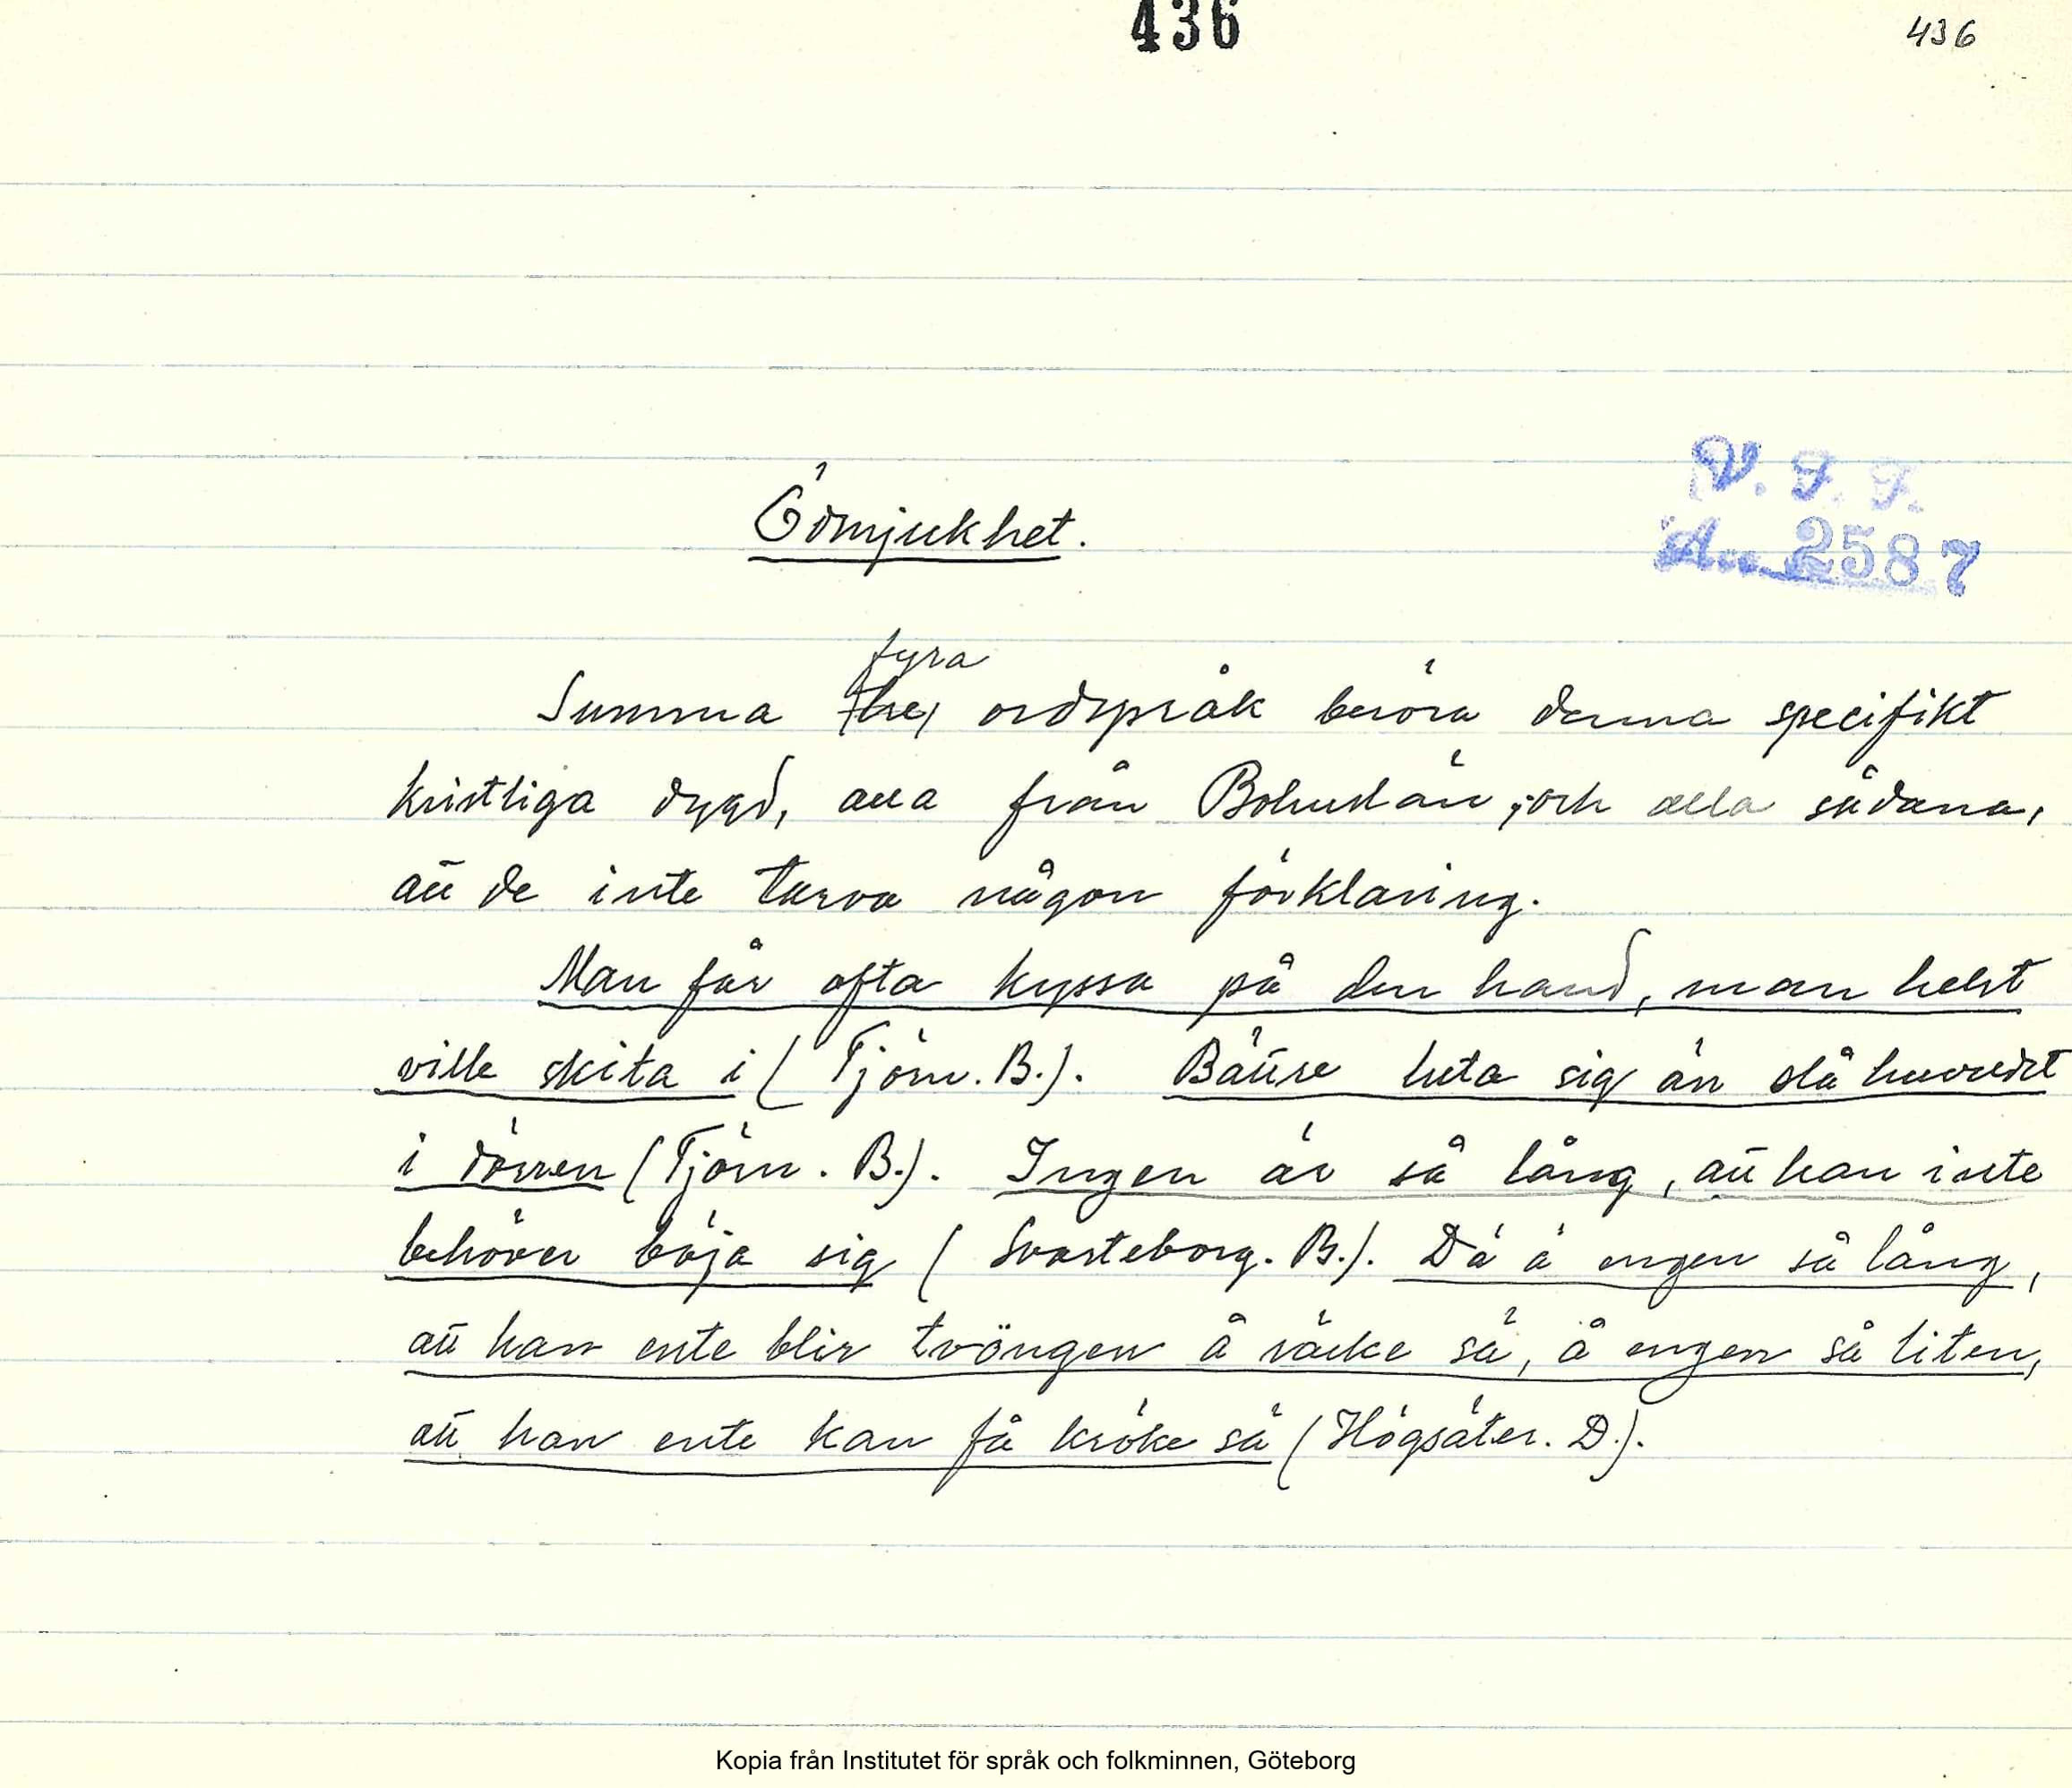 436
436
V. F. F.
Acc. 2587
Ödmjukhet.
fyra
Summa tre ordspråk beröra denna specifikt
kristliga dygd, alla från Bohuslän, och alla sådana,
att de inte tarva någon förklaring.
Man får ofta kyssa på den hand, man helst
ville skita i (Tjörn. B.). Bättre luta sig än slå huvudet
i dörren (Tjörn. B.). Ingen är så lång, att han inte
behöver böja sig (Svarteborg. B.). Dä ä engen så lång,
att han ente blir tvöngen å räcke sä, å engen så liten,
att han ente kan få kröke sä (Högsäter. D.).
Kopia från Institutet för språk och folkminnen, Göteborg